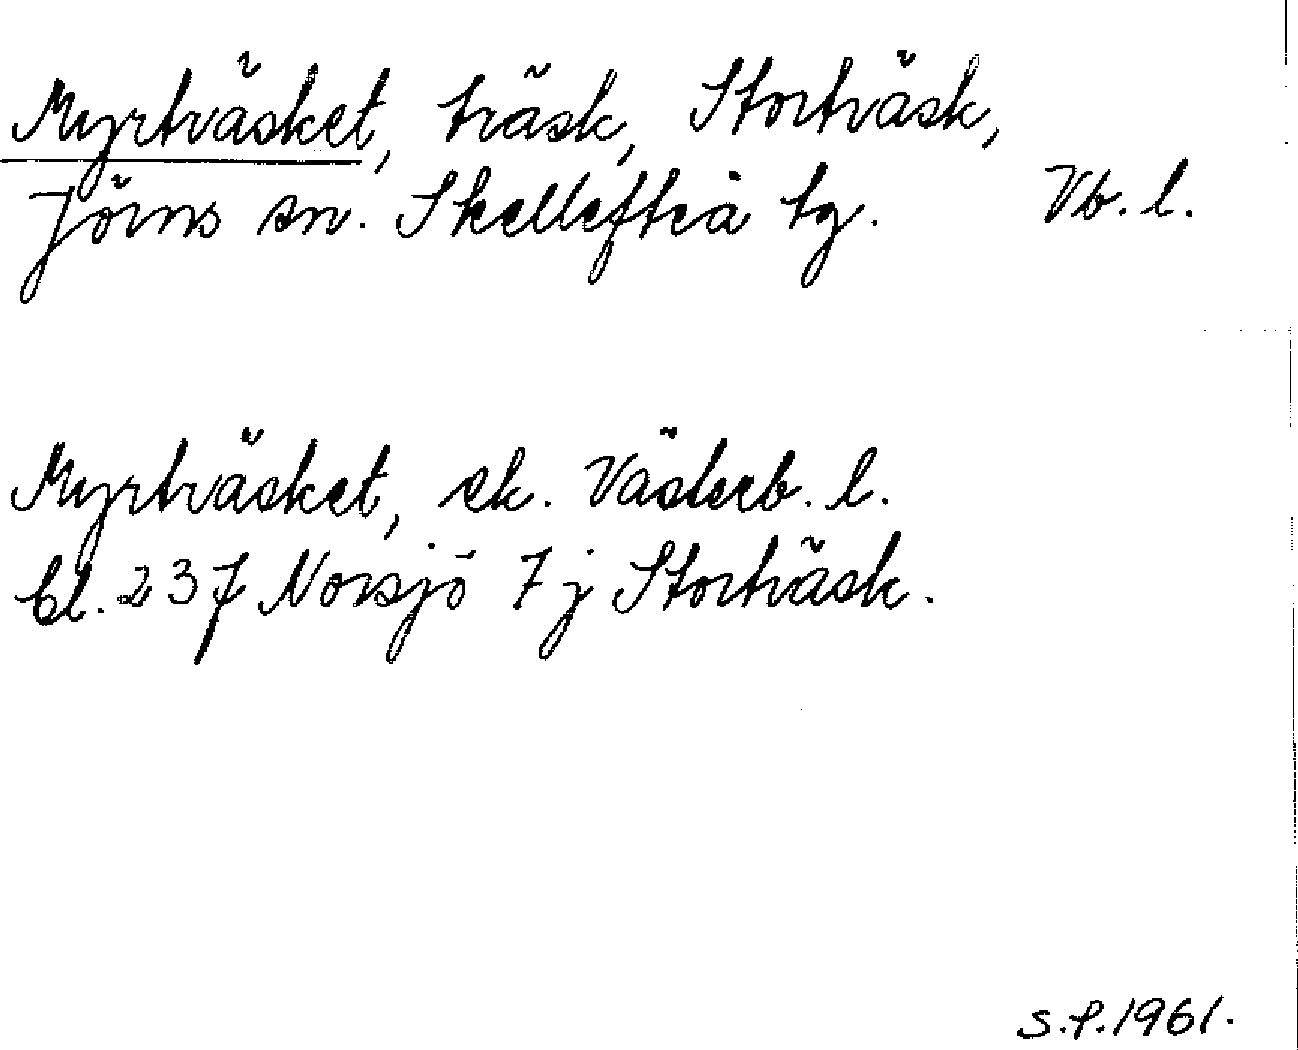 Myrträsket, träsk, Storträsk,
Jörns sn. Skellefteå tg. Vb. l.
Myrträsket, ek. Västerb. l.
bl. 237 Norsjö 7 j Storträsk.
S.P. 1961.